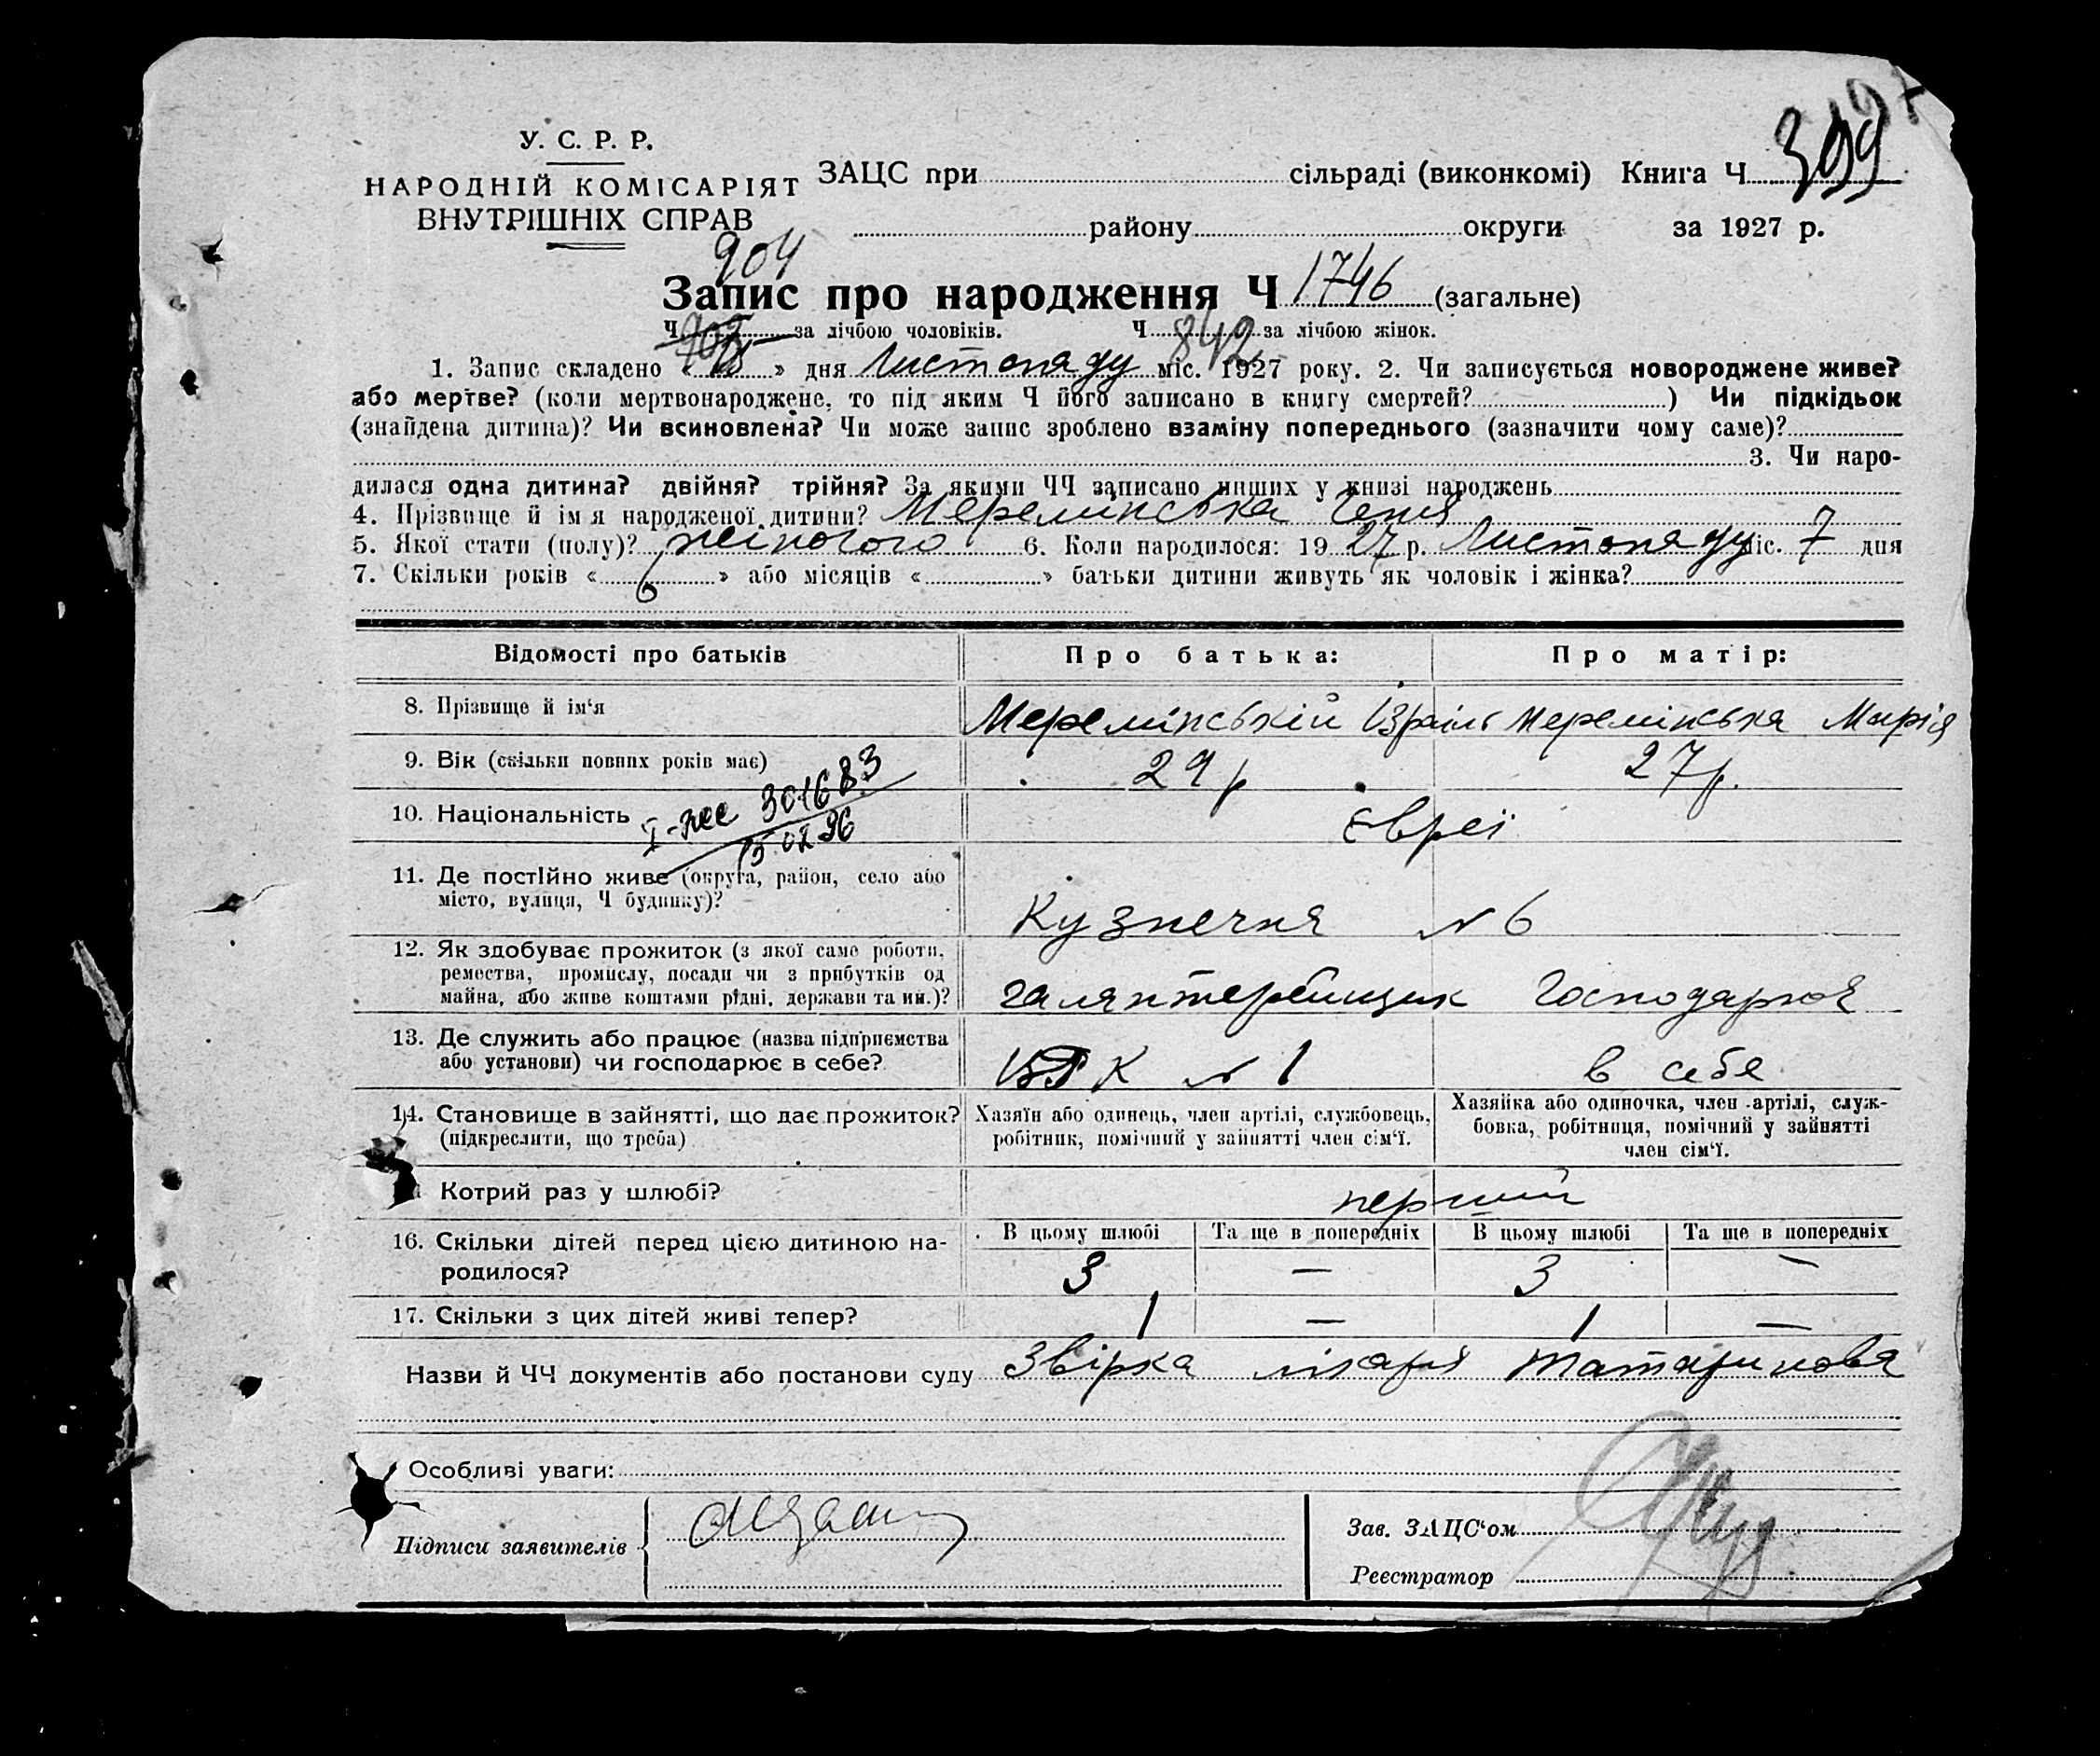 399
У. С. Р. Р.
НАРОДНІЙ КОМІСАРІЯТ
ВНУТРІШНІХ СПРАВ
ЗАЦС при сільраді (виконкомі) Книга Ч
району округи за 1927 р.
904
Запис про народження Ч 1746 (загальне)
Ч 903 за лічбою чоловіків. Ч 842 за лічбою жінок.
1. Запис складено « » дня Листопаду міс. 1927 року. 2. Чи записується новороджене живе?
або мертве? (коли мертвонароджене, то під яким Ч його записано в книгу смертей? ) Чи підкідьок
(знайдена дитина)? Чи всиновлена? Чи може запис зроблено взаміну попереднього (зазначити чому саме)?
3. Чи наро-
дилася одна дитина? двійня? трійня? За якими ЧЧ записано инших у книзі народжень
4. Прізвище й ім я народженої дитини? Мереминська Геня
5. Якої стати (полу)? жіночого 6. Коли народилося: 19 27 р. Листопаду міс. 7 дня
7. Скільки років « 6 » або місяців « » батьки дитини живуть як чоловік і жінка?
Відомості про батьків Про батька: Про матір:
8. Прізвище й ім‘я Меремінській Ізраїль Меремінська Марія
9. Вік (скільки повних років має) 29 р 27 р.
10. Національність Євреї
І-ЖЕЕ 301683
15.02.96
11. Де постійно живе (округа, район, село або
місто, вулиця, Ч будинку)? Кузнечня № 6
12. Як здобуває прожиток (з якої саме роботи,
ремества, промислу, посади чи з прибутків од
майна, або живе коштами рідні, держави та ин.)? галянтерейщик Господарюя
13. Де служить або працює (назва підприємства
або установи) чи господарює в себе? К № 1 в себе
14. Становище в зайнятті, що дає прожиток?
(підкреслити, що треба)
Хазяїн або одинець, член артілі, службовець,
робітник, помічний у зайнятті член сім‘ї.
Хазяйка або одиночка, член артілі, служ-
бовка, робітниця, помічний у зайнятті
член сім‘ї.
Котрий раз у шлюбі? перший
16. Скільки дітей перед цією дитиною на-
родилося?
В цьому шлюбі Та ще в попередніх В цьому шлюбі Та ще в попередніх
3 — 3 —
17. Скільки з цих дітей живі тепер? 1 — 1 —
Назви й ЧЧ документів або постанови суду Звірка лікаря Татаринова
Особливі уваги:
Підписи заявителів
Зав. ЗАЦС‘ом
Реєстратор